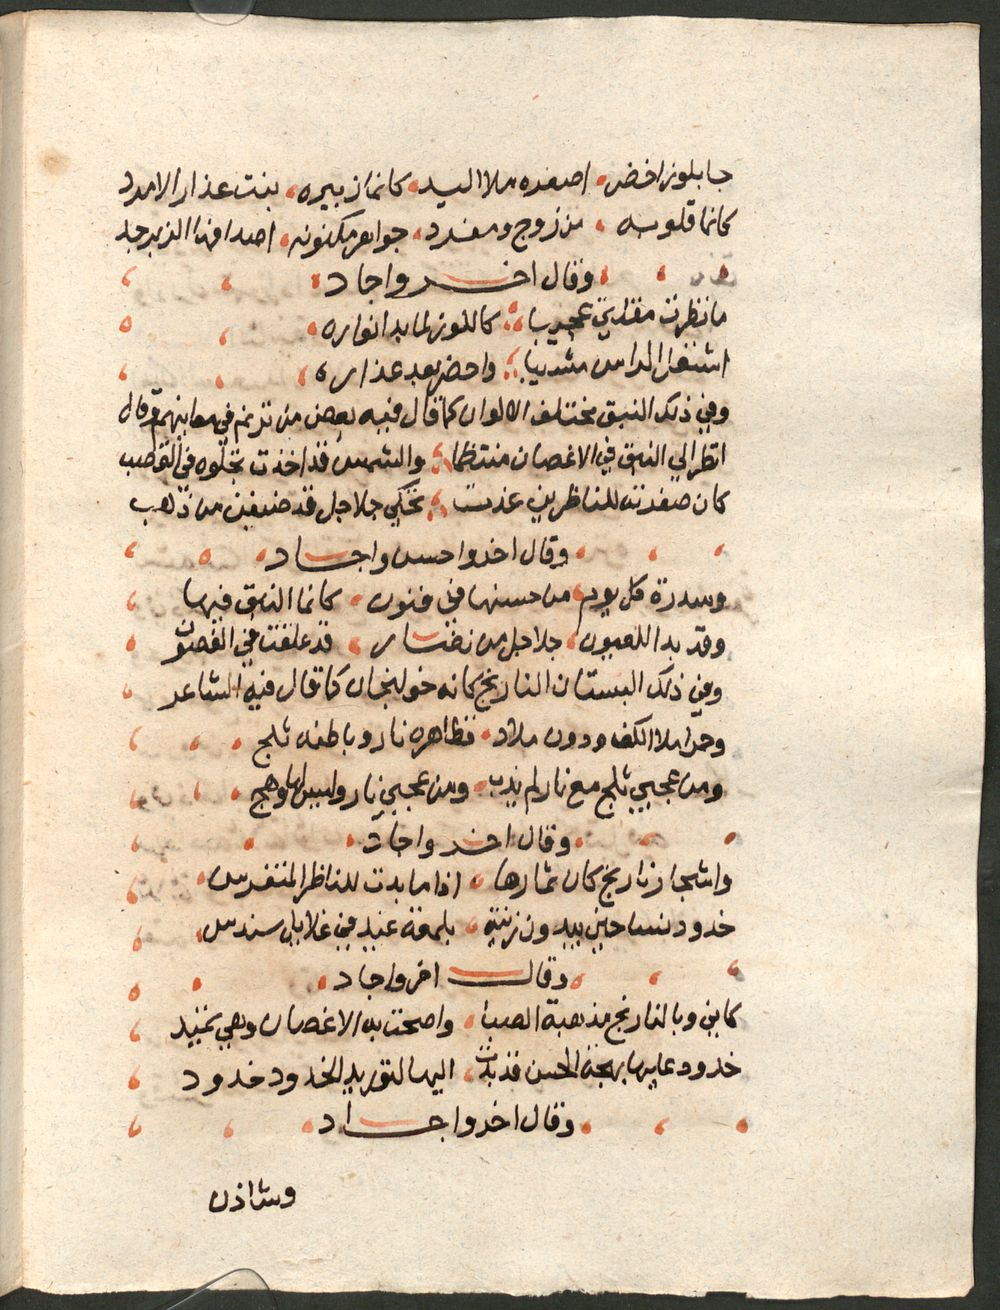 جا بلوز اخضر اصغره ملا اليد كانما زبيره بنت عذار الامرد
كانما قلوبه من زوج ومفرد جواهر مكنونه اصدافها الزبرجد
وقال اخر واجاد
ما نظرت مقلتي عجيبا كاللوز لما بدا نواره
اشتعل الراس مشيبا واخضر بعد عذاره
وفي ذلك النبق مختلف الالوان كما قال فيه بعض من ترنم في معانيهم وقال
انظر الي النبق في الاغصان منتظما والشمس قد اخذت تجلوه في القضب
كان صفرته للناظرين غدت تحكي جلاجل قد صيغن من ذهب
وقال اخر واحسن واجاد
وسدرة كل يوم من حسنها في فنون كانما النبق فيها
وقد بدا للعيون جلاجل من نضار قد علقت في الغصون
وفي ذلك البستان النارنج كانه خولنجان كما قال فيه الشاعر
وحمرا ملا الكف ودون ملاد فظاهره نار وباطنه ثلج
ومن عجبي ثلج مع نار لم يذب ومن عجبي نار وليس لها وهج
وقال اخر واجاد
واشجار نارنج كان ثمارها اذا ما بدت للناظر المتفرس
خدود نسا حين يبدون زينة بلمعة عيد في غلايل سندس
وقال اخر واجاد
كاين وبالنارنج مذ هبة الصبا واصحت به الاغصان وهي تميد
خدود عليها بهجة الحسن قد بدت اليها لتوريد الخدود خدود
وقال اخر واجاد
وشاذن